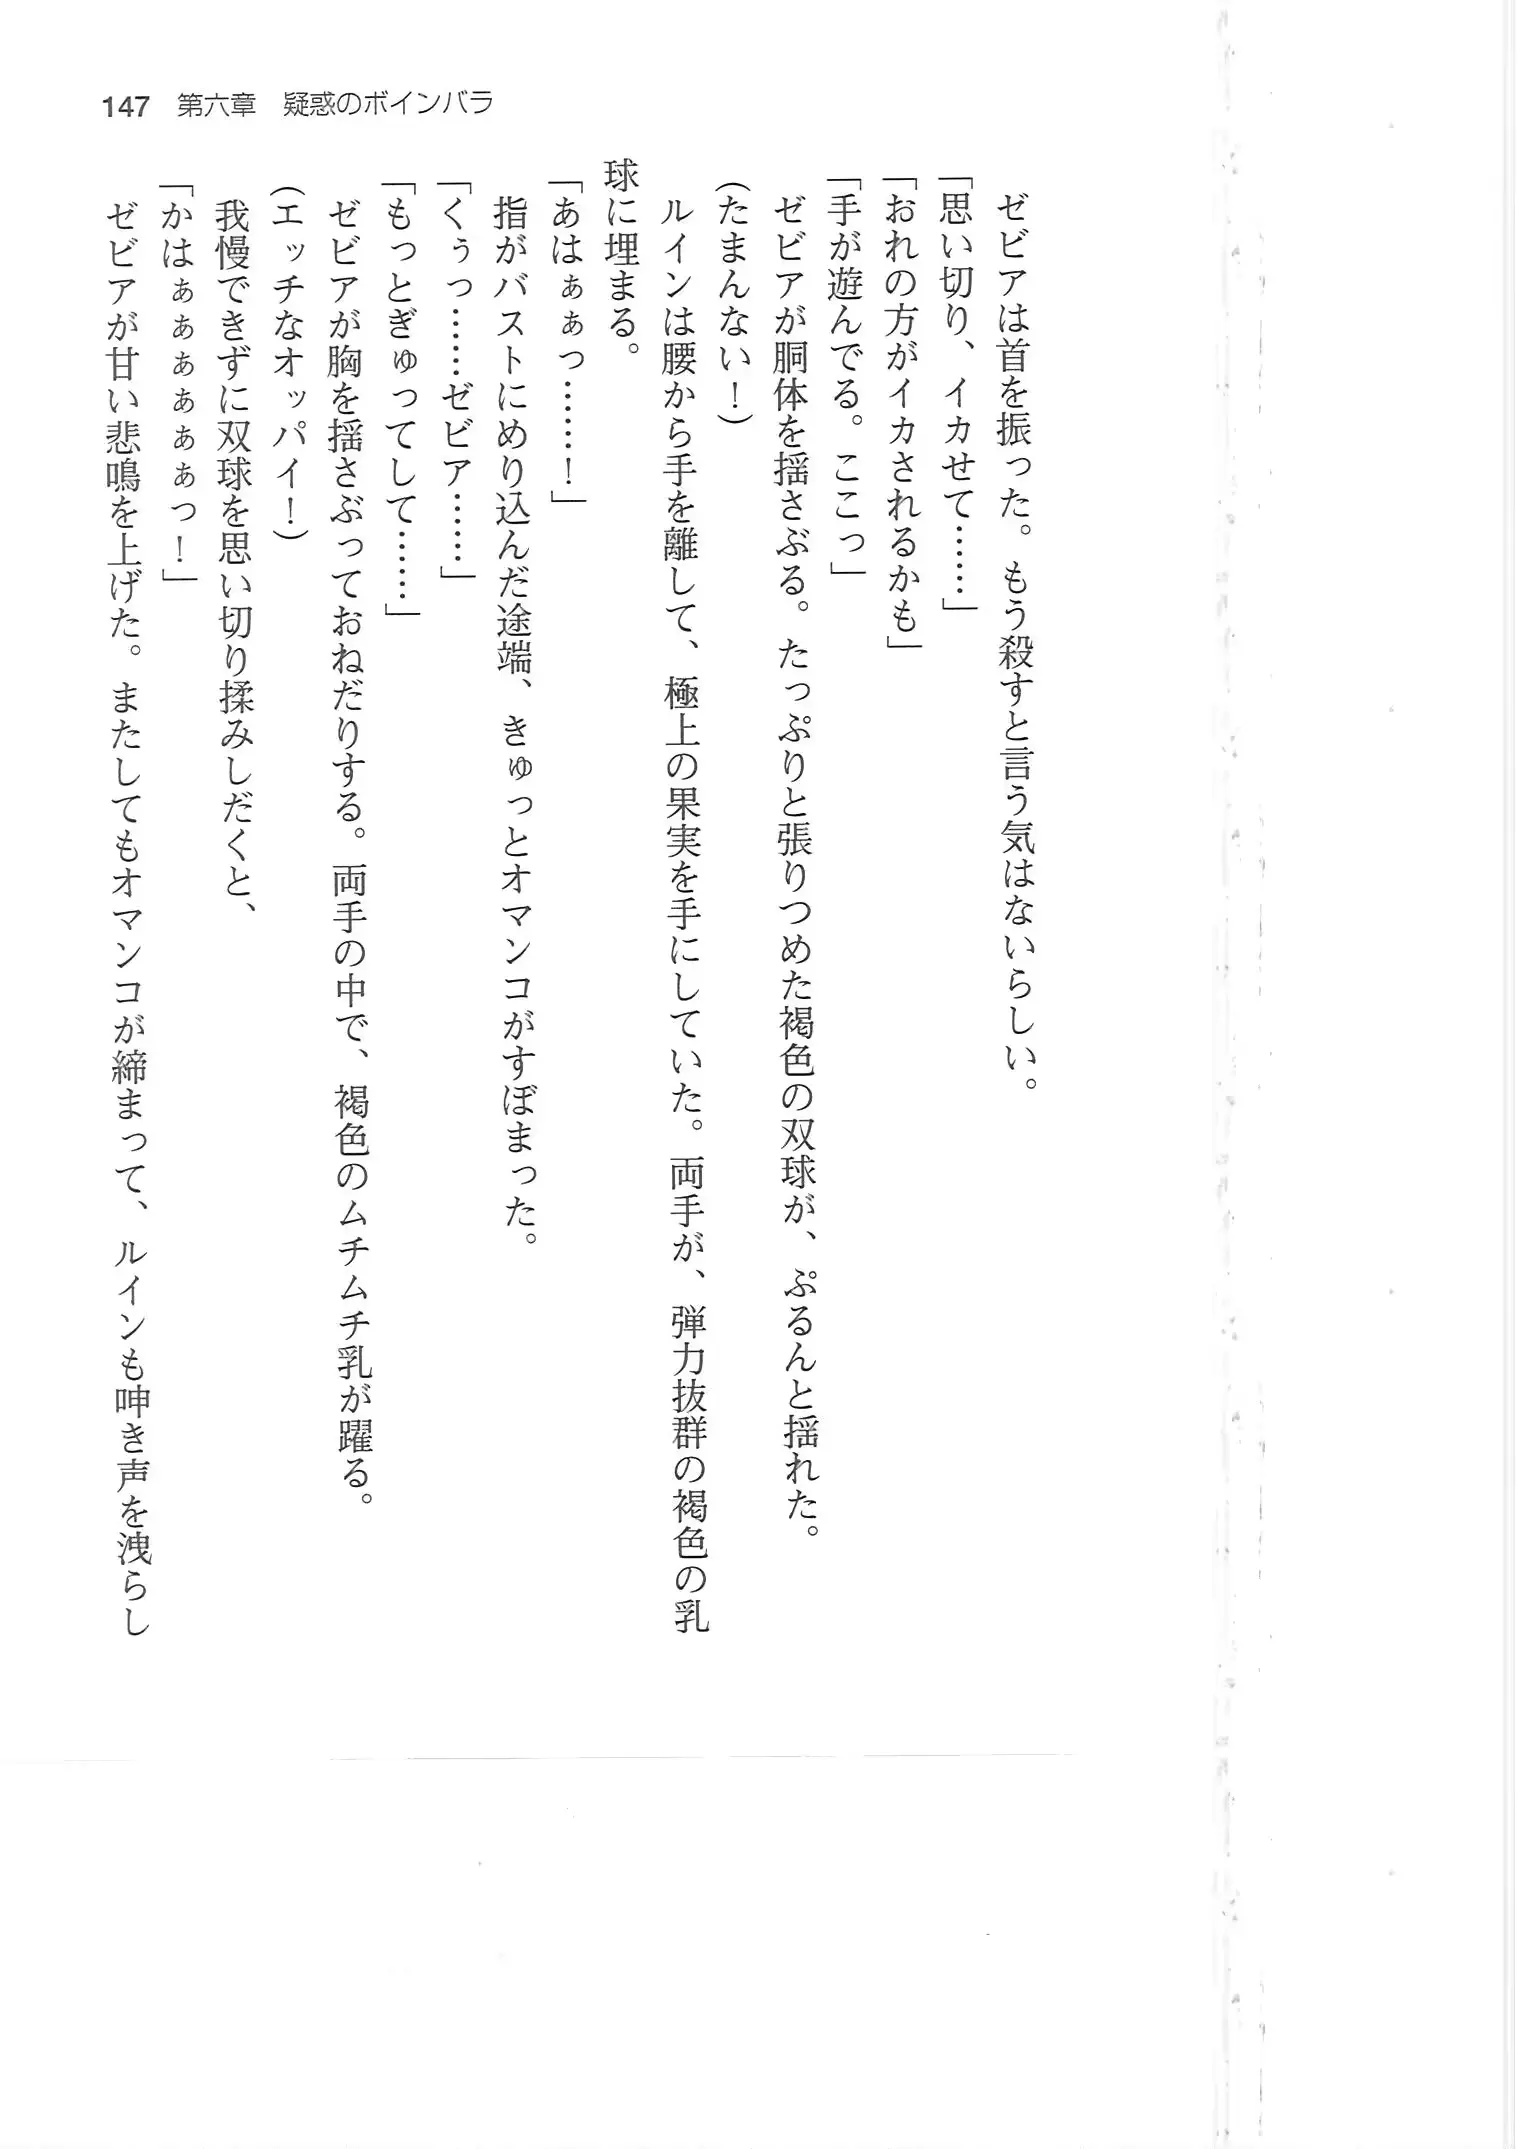 147 第六章 疑惑のボインバラ
ゼビアは首を振った。もう殺すと言う気はないらしい。
「思い切り、イカせて……」
「おれの方がイカされるかも」
「手が遊んでる。ここっ」
ゼビアが胴体を揺さぶる。たっぷりと張りつめた褐色の双球が、ぷるんと揺れた。
(たまんない！)
ルインは腰から手を離して、極上の果実を手にしていた。両手が、弾力抜群の褐色の乳
球に埋まる。
「あはぁぁっ……！」
指がバストにめり込んだ途端、きゅっとオマンコがすぼまった。
「くぅっ……ゼビア……」
「もっとぎゅってして……」
ゼビアが胸を揺さぶっておねだりする。両手の中で、褐色のムチムチ乳が躍る。
(エッチなオッパイ！)
我慢できずに双球を思い切り揉みしだくと、
「かはぁぁぁぁぁぁっ！」
ゼビアが甘い悲鳴を上げた。またしてもオマンコが締まって、ルインも呻き声を洩らし